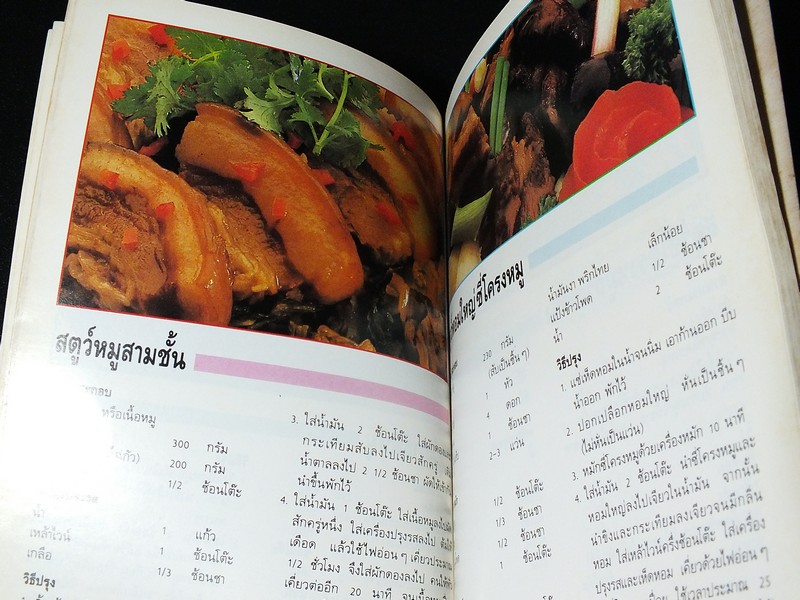 สตูว์หมูสามชั้น
หรือเนื้อหมู
300 กรัม
200 กรัม
1/2 ช้อนโต๊ะ
น้ำ
เหล้าไวน์ 1 แก้ว
เกลือ 1 ช้อนโต๊ะ
1/3 ช้อนชา
วิธีปรุง
3. ใส่น้ำมัน 2 ช้อนโต๊ะ ใส่ผักดอง
กระเทียมสับลงไปเจียวสักครู่
น้ำตาลลงไป 2 1/2 ช้อนชา ผัดให้
นำขึ้นพักไว้
4. ใส่น้ำมัน 1 ช้อนโต๊ะ ใส่เนื้อหมูลงไป
สักครู่หนึ่ง ใส่เครื่องปรุงรสลงไป
เดือด แล้วใช้ไฟอ่อนๆ เคี่ยวประมาณ
1/2 ชั่วโมง จึงใส่ผักดองลงไป คนให้
เคี่ยวต่ออีก 20 นาที จนเนื้อ
หอมใหญ่ซี่โครงหมู
230 กรัม
(สับเป็นชิ้นๆ)
1 หัว
4 ดอก
1 ช้อนชา
2-3 แว่น
1/2 ช้อนโต๊ะ
1/3 ช้อนชา
1/2 ช้อนชา
1 ช้อนโต๊ะ
น้ำมันงา พริกไทย เล็กน้อย
แป้งข้าวโพด 1/2 ช้อนชา
น้ำ 2 ช้อนโต๊ะ
วิธีปรุง
1. แช่เห็ดหอมในน้ำจนนิ่ม เอาก้านออก บีบ
น้ำออก พักไว้
2. ปอกเปลือกหอมใหญ่ หั่นเป็นชิ้นๆ
(ไม่หั่นเป็นแว่น)
3. หมักซี่โครงหมูด้วยเครื่องหมัก 10 นาที
4. ใส่น้ำมัน 2 ช้อนโต๊ะ นำซี่โครงหมูและ
หอมใหญ่ลงไปเจียวในน้ำมัน จากนั้น
นำขิงและกระเทียมลงเจียวจนมีกลิ่น
หอม ใส่เหล้าไวน์ครึ่งช้อนโต๊ะ ใส่เครื่อง
ปรุงรสและเห็ดหอม เคี่ยวด้วยไฟอ่อนๆ
ใช้เวลาประมาณ 25